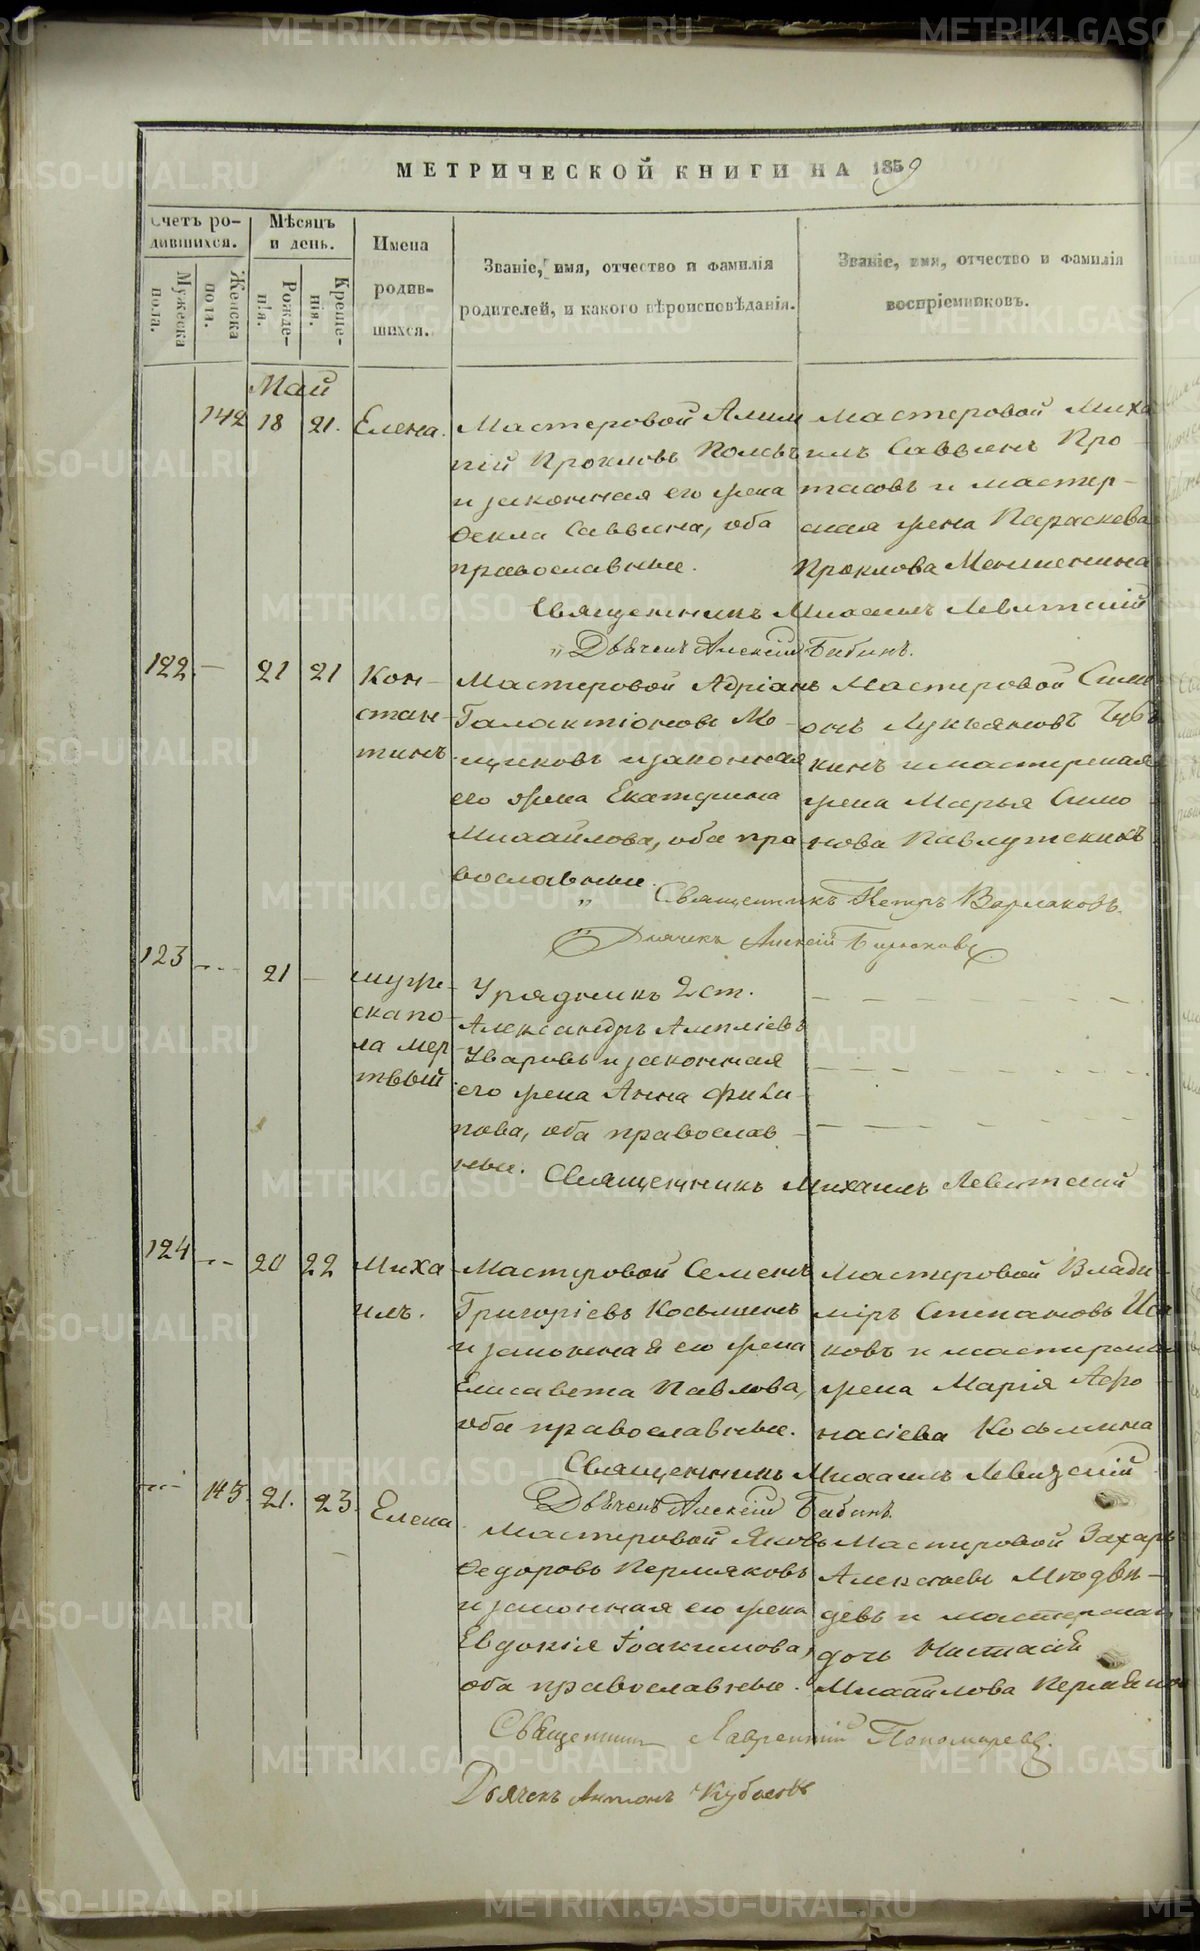 МЕТРИЧЕСКОЙ КНИГИ НА 1859
Счетъ ро-
дившихся.
Мужеска
пола.
Женска
пола.
Мѣсяцъ
и день.
Рожде-
нія.
Креще-
нія.
Имена
родив-
шихся.
Званіе, имя, отчество и фамилія
родителей, и какого вѣроисповѣданія.
Званіе, имя, отчество и фамилія
воспріемниковъ.
Май
142 18 21. Елена.
Мастеровой
Прокловъ
и законная его жена
Ѳекла Саввина, оба
православные.
Мастеровой Миха
илъ Саввинъ Про
тасовъ и мастер-
ская жена Параскева
Проклова Меншенина
Священникъ Михаилъ Левитскій
Дьячекъ Алексій Бабинъ.
122 — 21 21 Кон-
стан-
тинъ
Мастеровой Адріанъ
Галактіоновъ Мо-
щиковъ и законная
его жена Екатерина
Михайлова, оба пра
вославные.
Мастеровой Симе
онъ Лукьяновъ
кинъ и мастерская
жена Марья Симо
нова
Священникъ Петръ Варлаковъ.
Дьячекъ Алексій Бирюковъ
123 — 21 — мужe-
ска по-
ла мер
твый
Урядникъ 2 ст.
Александръ
Уваровъ и законная
его жена Анна Фили-
пова, оба православ-
ные.
Священникъ Михаилъ Левитскій
124 — 20 22 Миха
илъ.
Мастеровой Семенъ
Григорьевъ Косьминъ
и законная его жена
Елисавета Павлова,
оба православные.
Мастеровой Влади-
міръ Степановъ
ковъ и мастерская
жена Марія Афо-
насіева Косьмина
Священникъ Михаилъ Левитскій
Дьячекъ Алексій Бабинъ.
— 143. 21. 23. Елена.
Мастеровой Яковъ
Ѳедоровъ Пермяковъ
и законная его жена
Евдокія Іоакимова,
оба православные.
Мастеровой Захаръ
Алексѣевъ Медвѣ-
девъ и мастерская
дочь Настасія
Михайлова Пермякова
Священникъ Лаврентій Пономаревъ.
Дьячекъ Антонъ Кубасовъ
METRIKI.GASO-URAL.RU